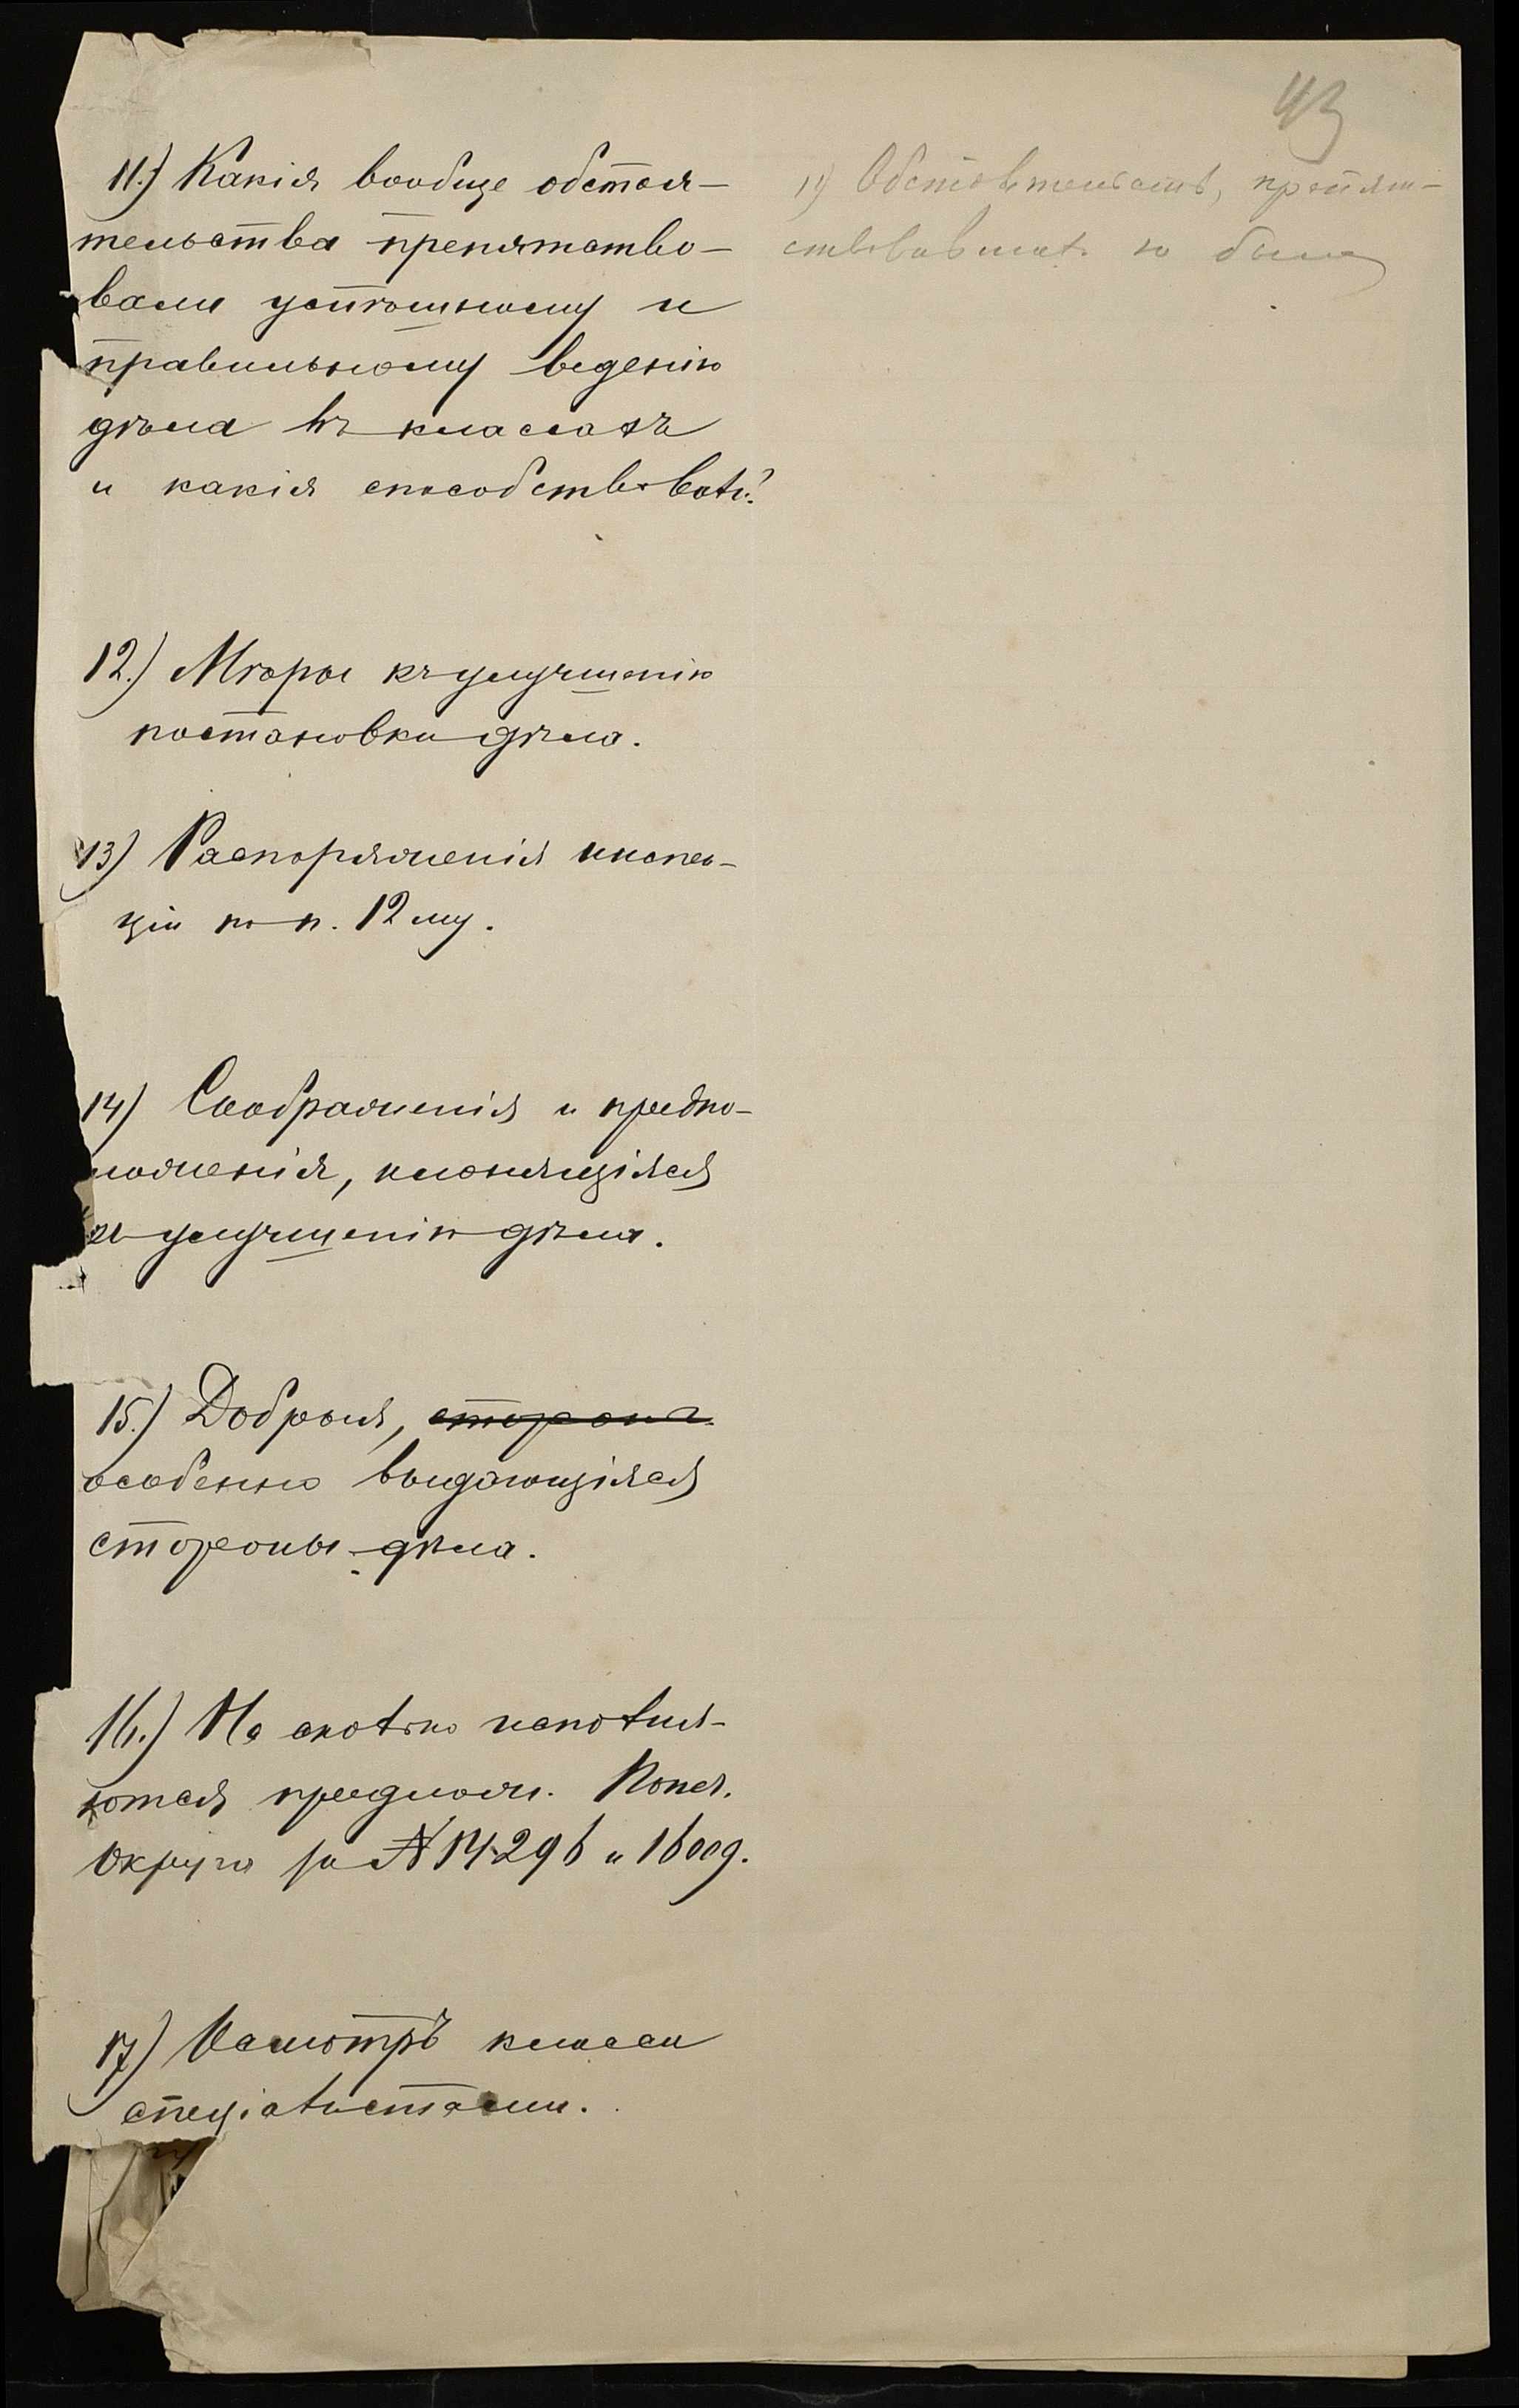 43
11.) Какія вообще обстоя-
тельства препятство-
вали успѣшному и
правильному веденію
дѣла въ классахъ
и какія способствовали?
11) Обстоятельствъ, препят-
ствовавшихъ не было
12.) Мѣры къ улучшенію
постановки дѣла.
13) Распоряженія инспек-
ціи по п. 12 му.
14) Соображенія и предпо-
ложенія, клонящіяся
къ улучшенію дѣла.
15.) Добрыя, стороны
особенно выдающіяся
стороны дѣла.
16.) На сколько исполня-
ются предлож. Попеч.
Округа за № 14296 и 16009.
17) Осмотръ класса
спеціалистами.